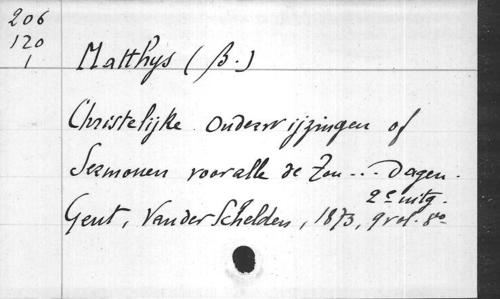 206
120
1
Matthys (B.)
Christelijke Onderwijzingen of
Sermonen voor alle de Zon... Dagen.
2e uitg.
Gent, Vander Schelden, 1873, 9 vol. 8o